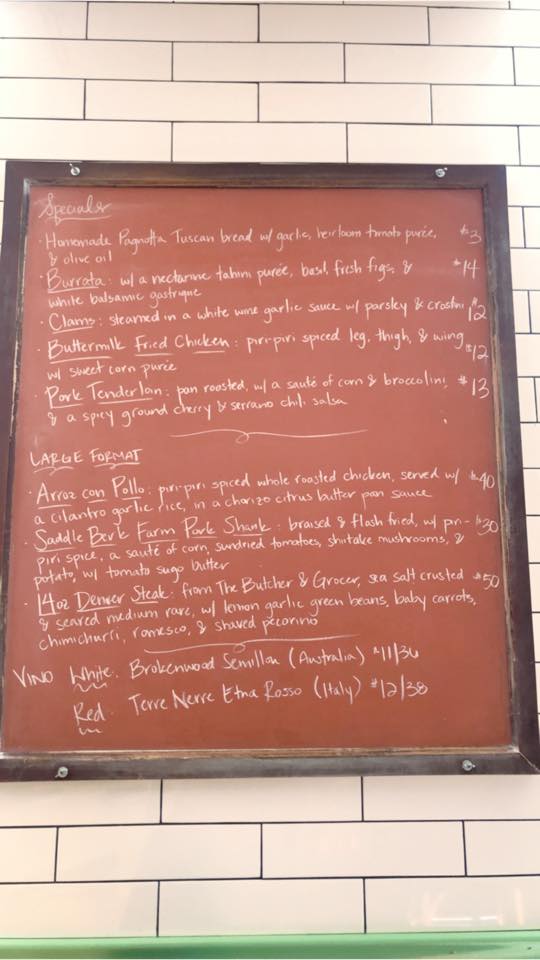 Specials
· Homemade Pagnotta Tuscan bread w/ garlic, heirloom tomato purée, $3
& olive oil
· Burrata: w/ a nectarine tahini purée, basil, fresh figs, & $14
white balsamic gastrique
· Clams: steamed in a white wine garlic sauce w/ parsley & crostini $12
· Buttermilk Fried Chicken: piri-piri spiced leg, thigh, & wing $12
w/ sweet corn purée
· Pork Tenderloin: pan roasted, w/ a sauté of corn & broccolini $13
& a spicy ground cherry & serrano chili salsa
LARGE FORMAT
· Arroz con Pollo: piri-piri spiced whole roasted chicken, served w/ $40
a cilantro garlic rice, in a chorizo citrus butter pan sauce
· Saddle Berk Farm Pork Shank: braised & flash fried, w/ piri- $30
piri spice, a sauté of corn, sundried tomatoes, shiitake mushrooms, &
potato, w/ tomato sugo butter
· 14oz Denver Steak: from The Butcher & Grocer, sea salt crusted $50
& seared medium rare, w/ lemon garlic green beans, baby carrots,
chimichurri, romesco, & shaved pecorino
VINO White: Brokenwood Semillon (Australia) $11/36
Red: Terre Nerre Etna Rosso (Italy) $12/38